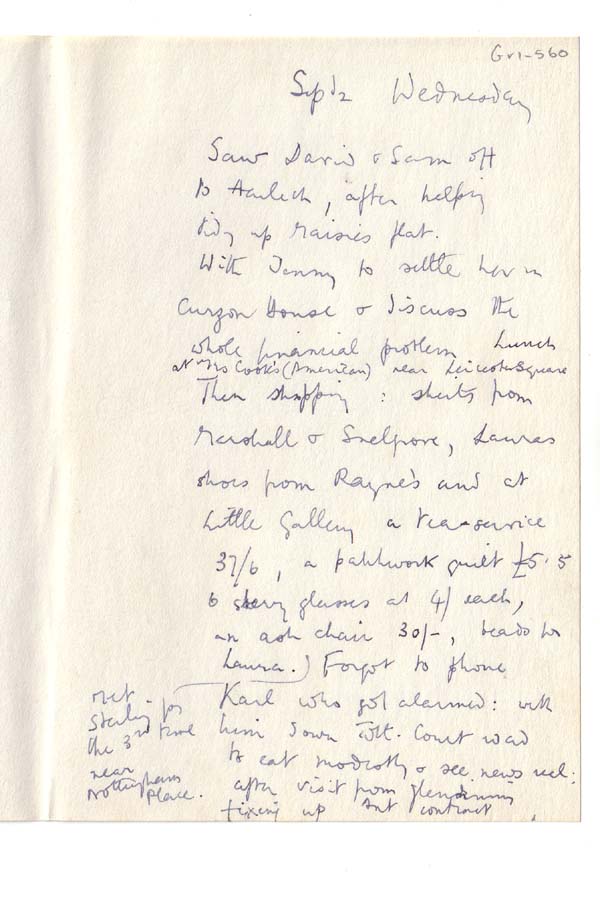 Gr1-560
Sept 2 Wednesday
Saw David & Sam off
to Harlech, after helping
tidy up Maisie's flat.
With Jenny to settle her in
Curzon House & discuss the
whole financial problem Lunch
at Mrs Cook's (American) near Leicester Square
Then shopping : sheets from
Marshall & Snelgrove, Lauras
shoes from Rayne's and at
Little Gallery a tea-service
37/6, a patchwork quilt £5.5
6 sherry glasses at 4/ each,
an ash chair 30/-, beads for
Laura.) Forgot to phone
Karl who got alarmed: with
him down Tott. Court road
to eat modestly & see news reel:
after visit from Glendinning
fixing up Ant contract.
met
Sterling for
the 3rd time
near
Nottingham
Place.